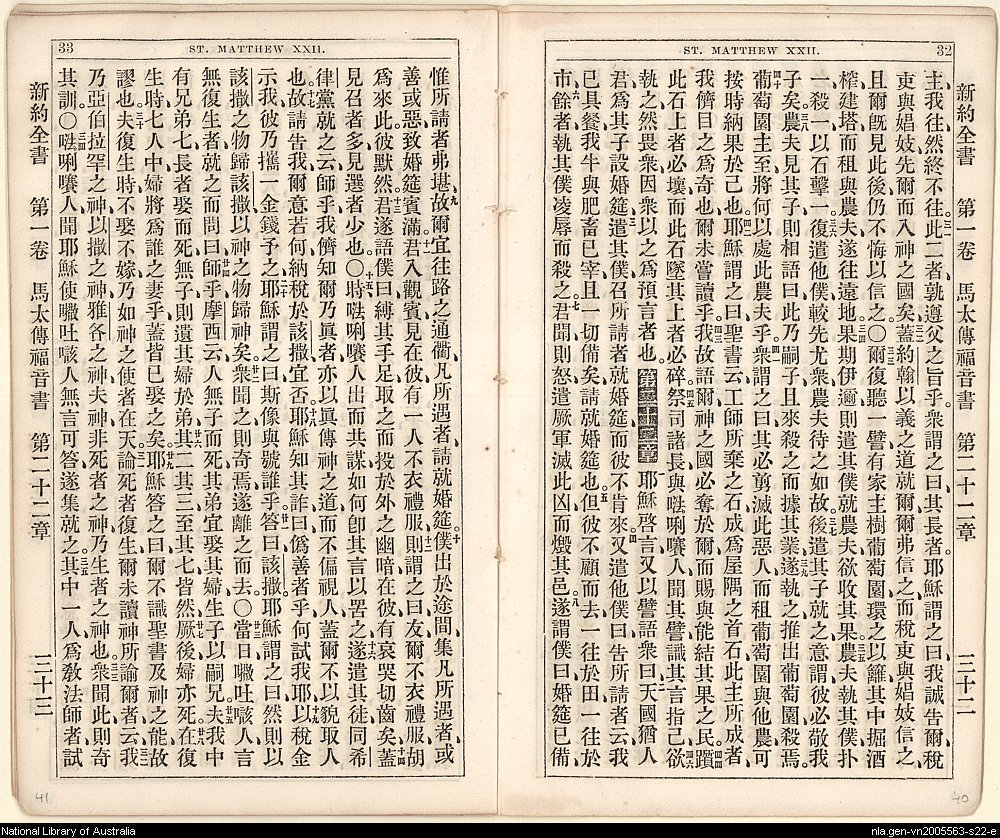 ST. MATTHEW XXII. 32
新約全書 第一卷 馬太傳福音書 第二十二章 三十二
主、我往然終不往。此二者、孰遵父之旨乎。衆謂之曰、其長者。耶穌謂之曰、我誠告爾、稅
吏與娼妓先爾而入神之國矣。蓋約翰以義之道就爾、爾弗信之、而稅吏與娼妓信之、
且爾旣見此、後仍不悔以信之。〇爾復聽一譬、有家主樹葡萄園、環之以籬、其中掘酒
榨、建塔、而租與農夫、遂往遠地。果期伊邇、則遣其僕就農夫、欲收其果。農夫執其僕、扑
一、殺一、以石擊一。復遣他僕、較先尤衆、農夫待之如故。後遣其子就之、意謂彼必敬我
子矣。農夫見其子、則相語曰、此乃嗣子、且來殺之、而據其業。遂執之、推出葡萄園殺焉。
葡萄園主至、將何以處此農夫乎。衆謂之曰、其必剪滅此惡人、而租葡萄園與他農、可
按時納果於己也。耶穌謂之曰、聖書云、工師所棄之石、成爲屋隅之首石、此主所成者、
我儕目之爲奇也、爾未嘗讀乎。我故語爾、神之國必奪於爾、而賜與能結其果之民。躓
此石上者必壞、而此石墜其上者必碎。祭司諸長與㗲唎嚽人聞其譬、識其言指己、欲
執之、然畏衆、因衆以之爲預言者也。 第二十二章 耶穌啓言、又以譬語衆曰、天國猶人
君爲其子設婚筵、遣其僕召所請者就婚筵、而彼不肯來。又遣他僕曰、告所請者云、我
已具餐、我牛與肥畜已宰、且一切備矣、請就婚筵也。但彼不顧而去、一往於田、一往於
市、餘者執其僕、凌辱而殺之。君聞則怒、遣厥軍滅此凶、而燬其邑。遂謂僕曰、婚筵已備、
ST. MATTHEW XXII. 33
惟所請者弗堪。故爾宜往路之通衢、凡所遇者、請就婚筵。僕出於途間、集凡所遇者、或
善或惡、致婚筵賓滿。君入觀賓、見在彼有一人不衣禮服、則謂之曰、友、爾不衣禮服、胡
爲來此、彼默然。君遂語僕曰、縛其手足、取之而投於外之幽暗、在彼有哀哭切齒矣。蓋
見召者多、見選者少也。〇時㗲唎嚽人出而共謀、如何卽其言以罟之。遂遣其徒、同希
律黨就之云、師乎、我儕知爾乃眞者、亦以眞傳神之道、而不偏視人、蓋爾不以貌取人
也。故請告我、爾意若何、納稅於該撒宜否。耶穌知其詐、曰、僞善者乎、何試我耶、以稅金
示我。彼乃攜一金錢予之。耶穌謂之曰、斯像與號誰乎。答曰、該撒。耶穌謂之曰、然則以
該撒之物歸該撒、以神之物歸神矣。衆聞之則奇焉、遂離之而去。〇當日㘔吐㗡人言
無復生者、就之而問曰、師乎、摩西云、人無子而死、其弟宜娶其婦、生子以嗣兄。夫我中
有兄弟七、長者娶而死、無子、則遺其婦於弟。其二其三至其七、皆然。厥後婦亦死。在復
生時、七人中婦將爲誰之妻乎、蓋皆已娶之矣。耶穌答之曰、爾不識聖書及神之能、故
謬也。夫復生時、不娶不嫁、乃如神之使者在天。論死者復生、爾未讀神所諭爾者云、我
乃亞伯拉罕之神、以撒之神、雅各之神。夫神非死者之神、乃生者之神也。衆聞此、則奇
其訓。〇㗲唎嚽人聞耶穌使㘔吐㗡人無言可答、遂集就之。其中一人爲教法師者、試
新約全書 第一卷 馬太傳福音書 第二十二章 三十三
41
40
National Library of Australia
nla.gen-vn2005563-s22-e